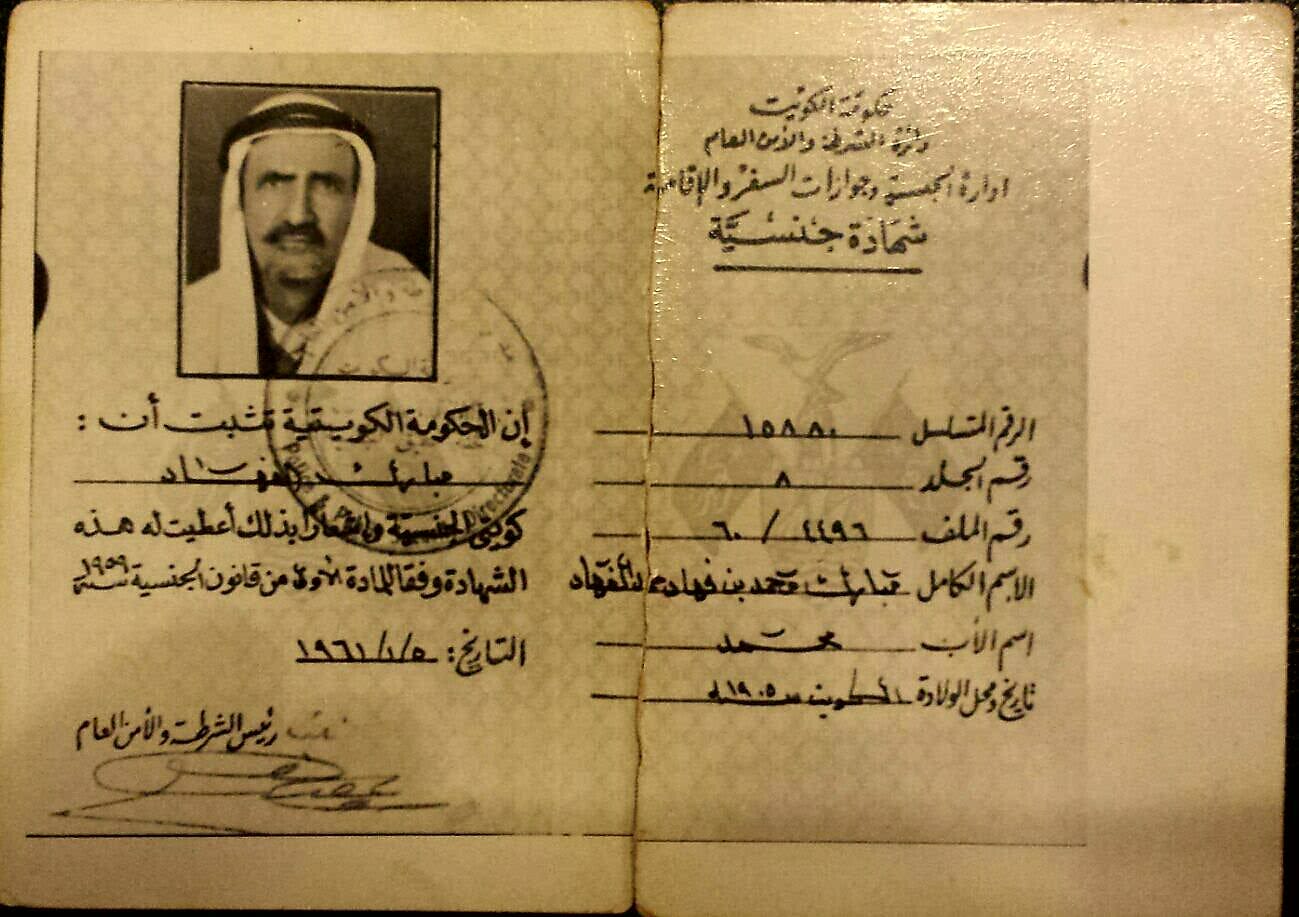 حكومة الكويت
دائرة الشرطة والأمن العام
ادارة الجنسية وجوازات السفر والإقامة
شهادة جنسيّة
الرقم المتسلسل ١٥٨٨٠
رقم الجلد ٨
رقم الملف ٤٤٩٦ / ٦٠
الاسم الكامل مبارك محمد بن فهاد الفهاد
اسم الأب محمد
تاريخ ومحل الولادة الكويت سنة ١٩٠٥
إن الحكومة الكويتية تثبت أن :
مبارك الفهاد
كويتي الجنسية واشعارا بذلك أعطيت له هذه
الشهادة وفقا للمادة الأولى من قانون الجنسية سنة ١٩٥٩
التاريخ : ١٩٦١/١/٥
رئيس الشرطة والأمن العام
Directorate